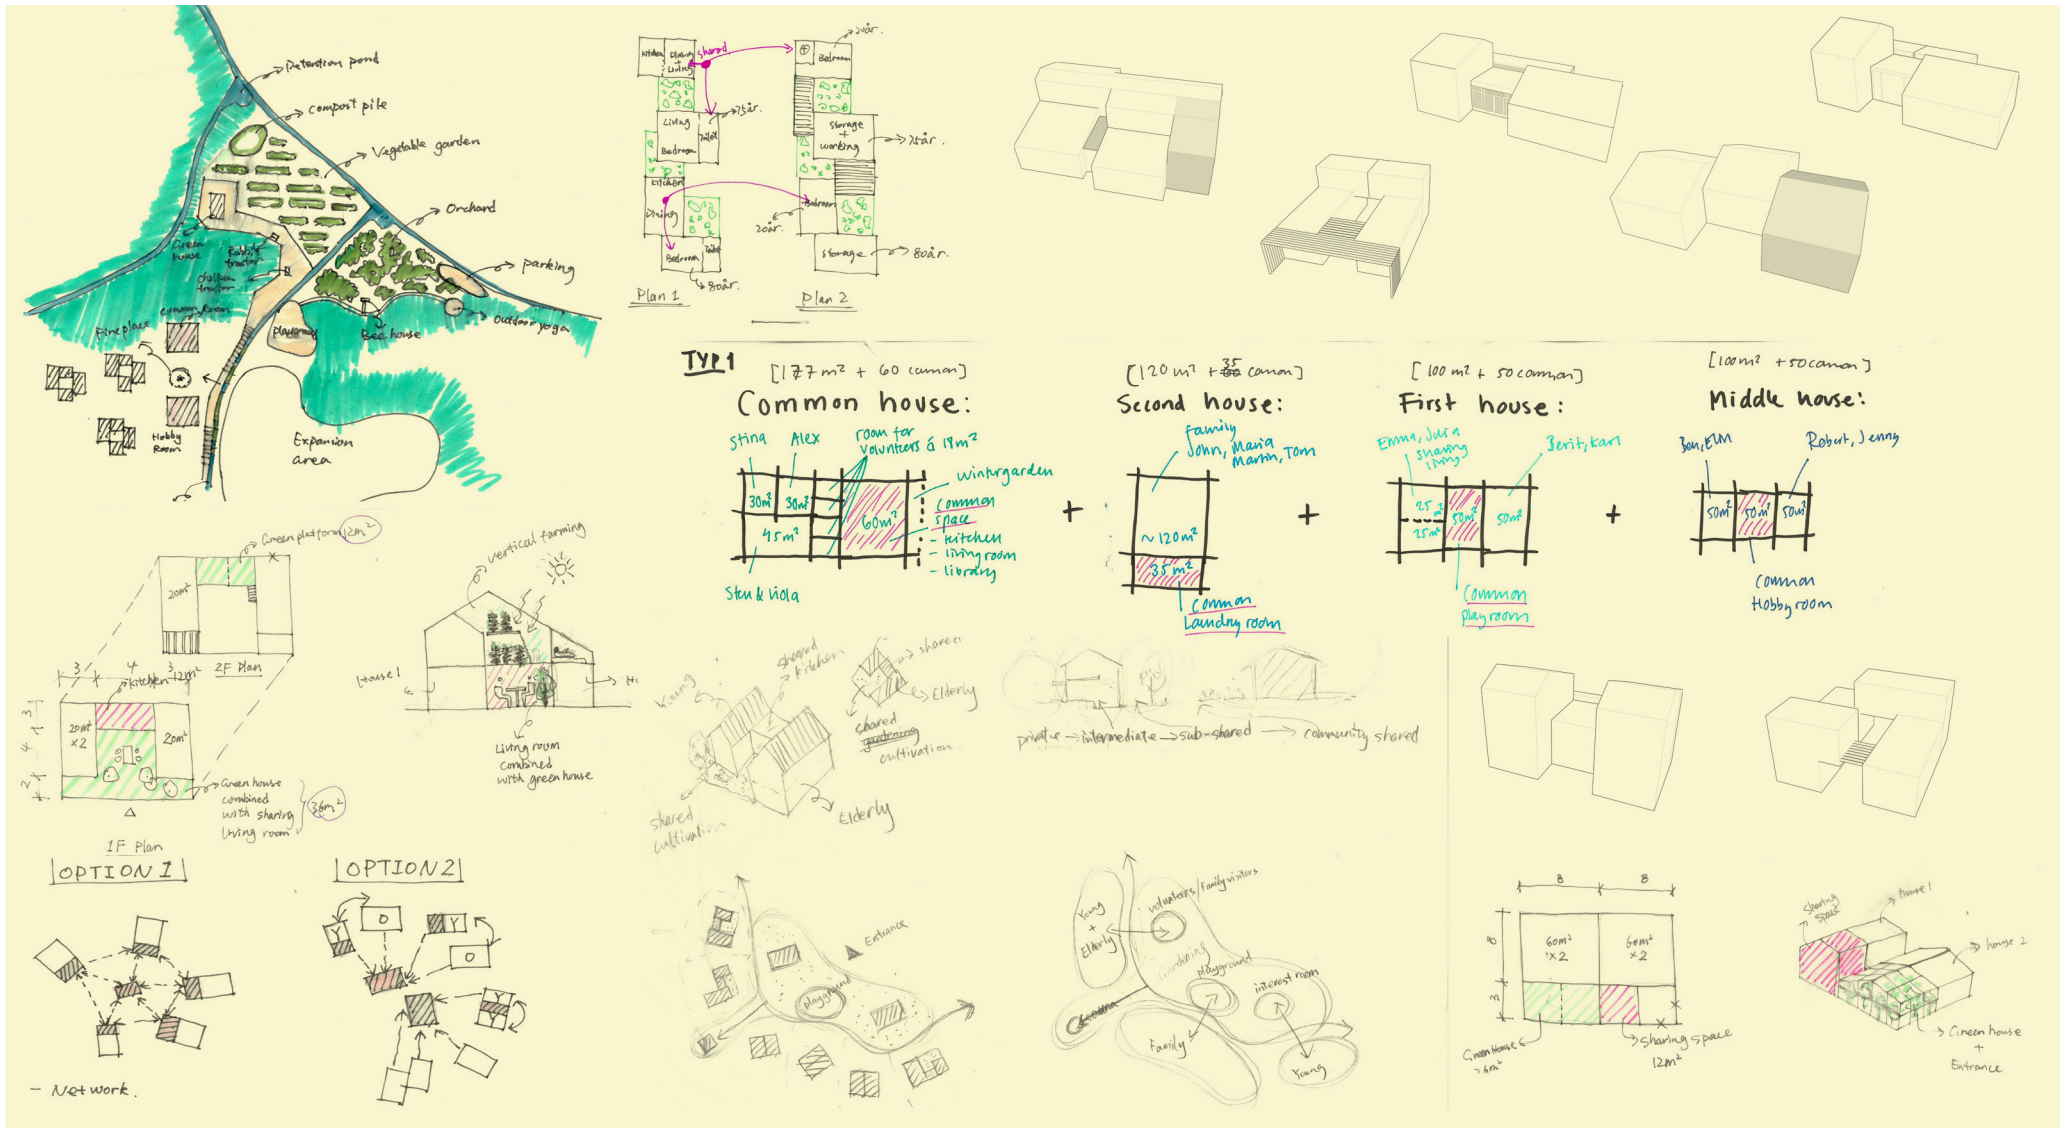 Detention pond
compost pile
Vegetable garden
Orchard
parking
outdoor yoga
Bee house
Playground
Green
house
Rabbit
tractor
chicken
tractor
common Room
Fireplace
Hobby
Room
Expansion
area
Kitchen
Dining
+
Living
shared
75år.
Living
Toilet
Bedroom
Kitchen
Dining
Bedroom
Toilet
80år.
Plan 1
20år.
Bedroom
Storage
+
working
75år.
Bedroom
20år.
Storage
80år.
Plan 2
TYP1
[177m² + 60 comon]
Common house:
Stina
Alex
room for
volunteers á 18m²
30m²
30m²
45m²
60m²
wintergarden
common
space
- kitchen
- livingroom
- library
Sten & Viola
+
[120m² + 35 comon]
Second house:
family
John, Maria
Martin, Tom
~120m²
35m²
Common
Laundry room
+
[100m² + 50 common]
First house:
Emma, Julia
sharing
living
Berit, Karl
25m²
25m²
50m²
50m²
Common
playroom
+
[100m² + 50 comon]
Middle house:
Ben, Elm
Robert, Jenny
50m²
50m²
50m²
Common
Hobbyroom
Green platform 12m²
20m²
2F Plan
3
4
3
kitchen 12m²
3
4
2
20m²
×2
20m²
Green house
combined
with sharing
living room
36m²
1F Plan
vertical farming
House 1
Living room
combined
with greenhouse
Young
shared
kitchen
Elderly
shared
cultivation
shared
Elderly
shared
gardening
cultivation
private → intermediate → sub-shared → community shared
OPTION 1
OPTION 2
Y
O
Y
O
Y
Y
- Network.
Entrance
playground
Young
+
Elderly
volunteers/Family visitors
Gardening
playground
interest room
Family
Young
8
8
8
3
60m²
×2
60m²
×2
Green House
Sharing space
12m²
Sharing
space
house 1
house 2
Green house
+
Entrance